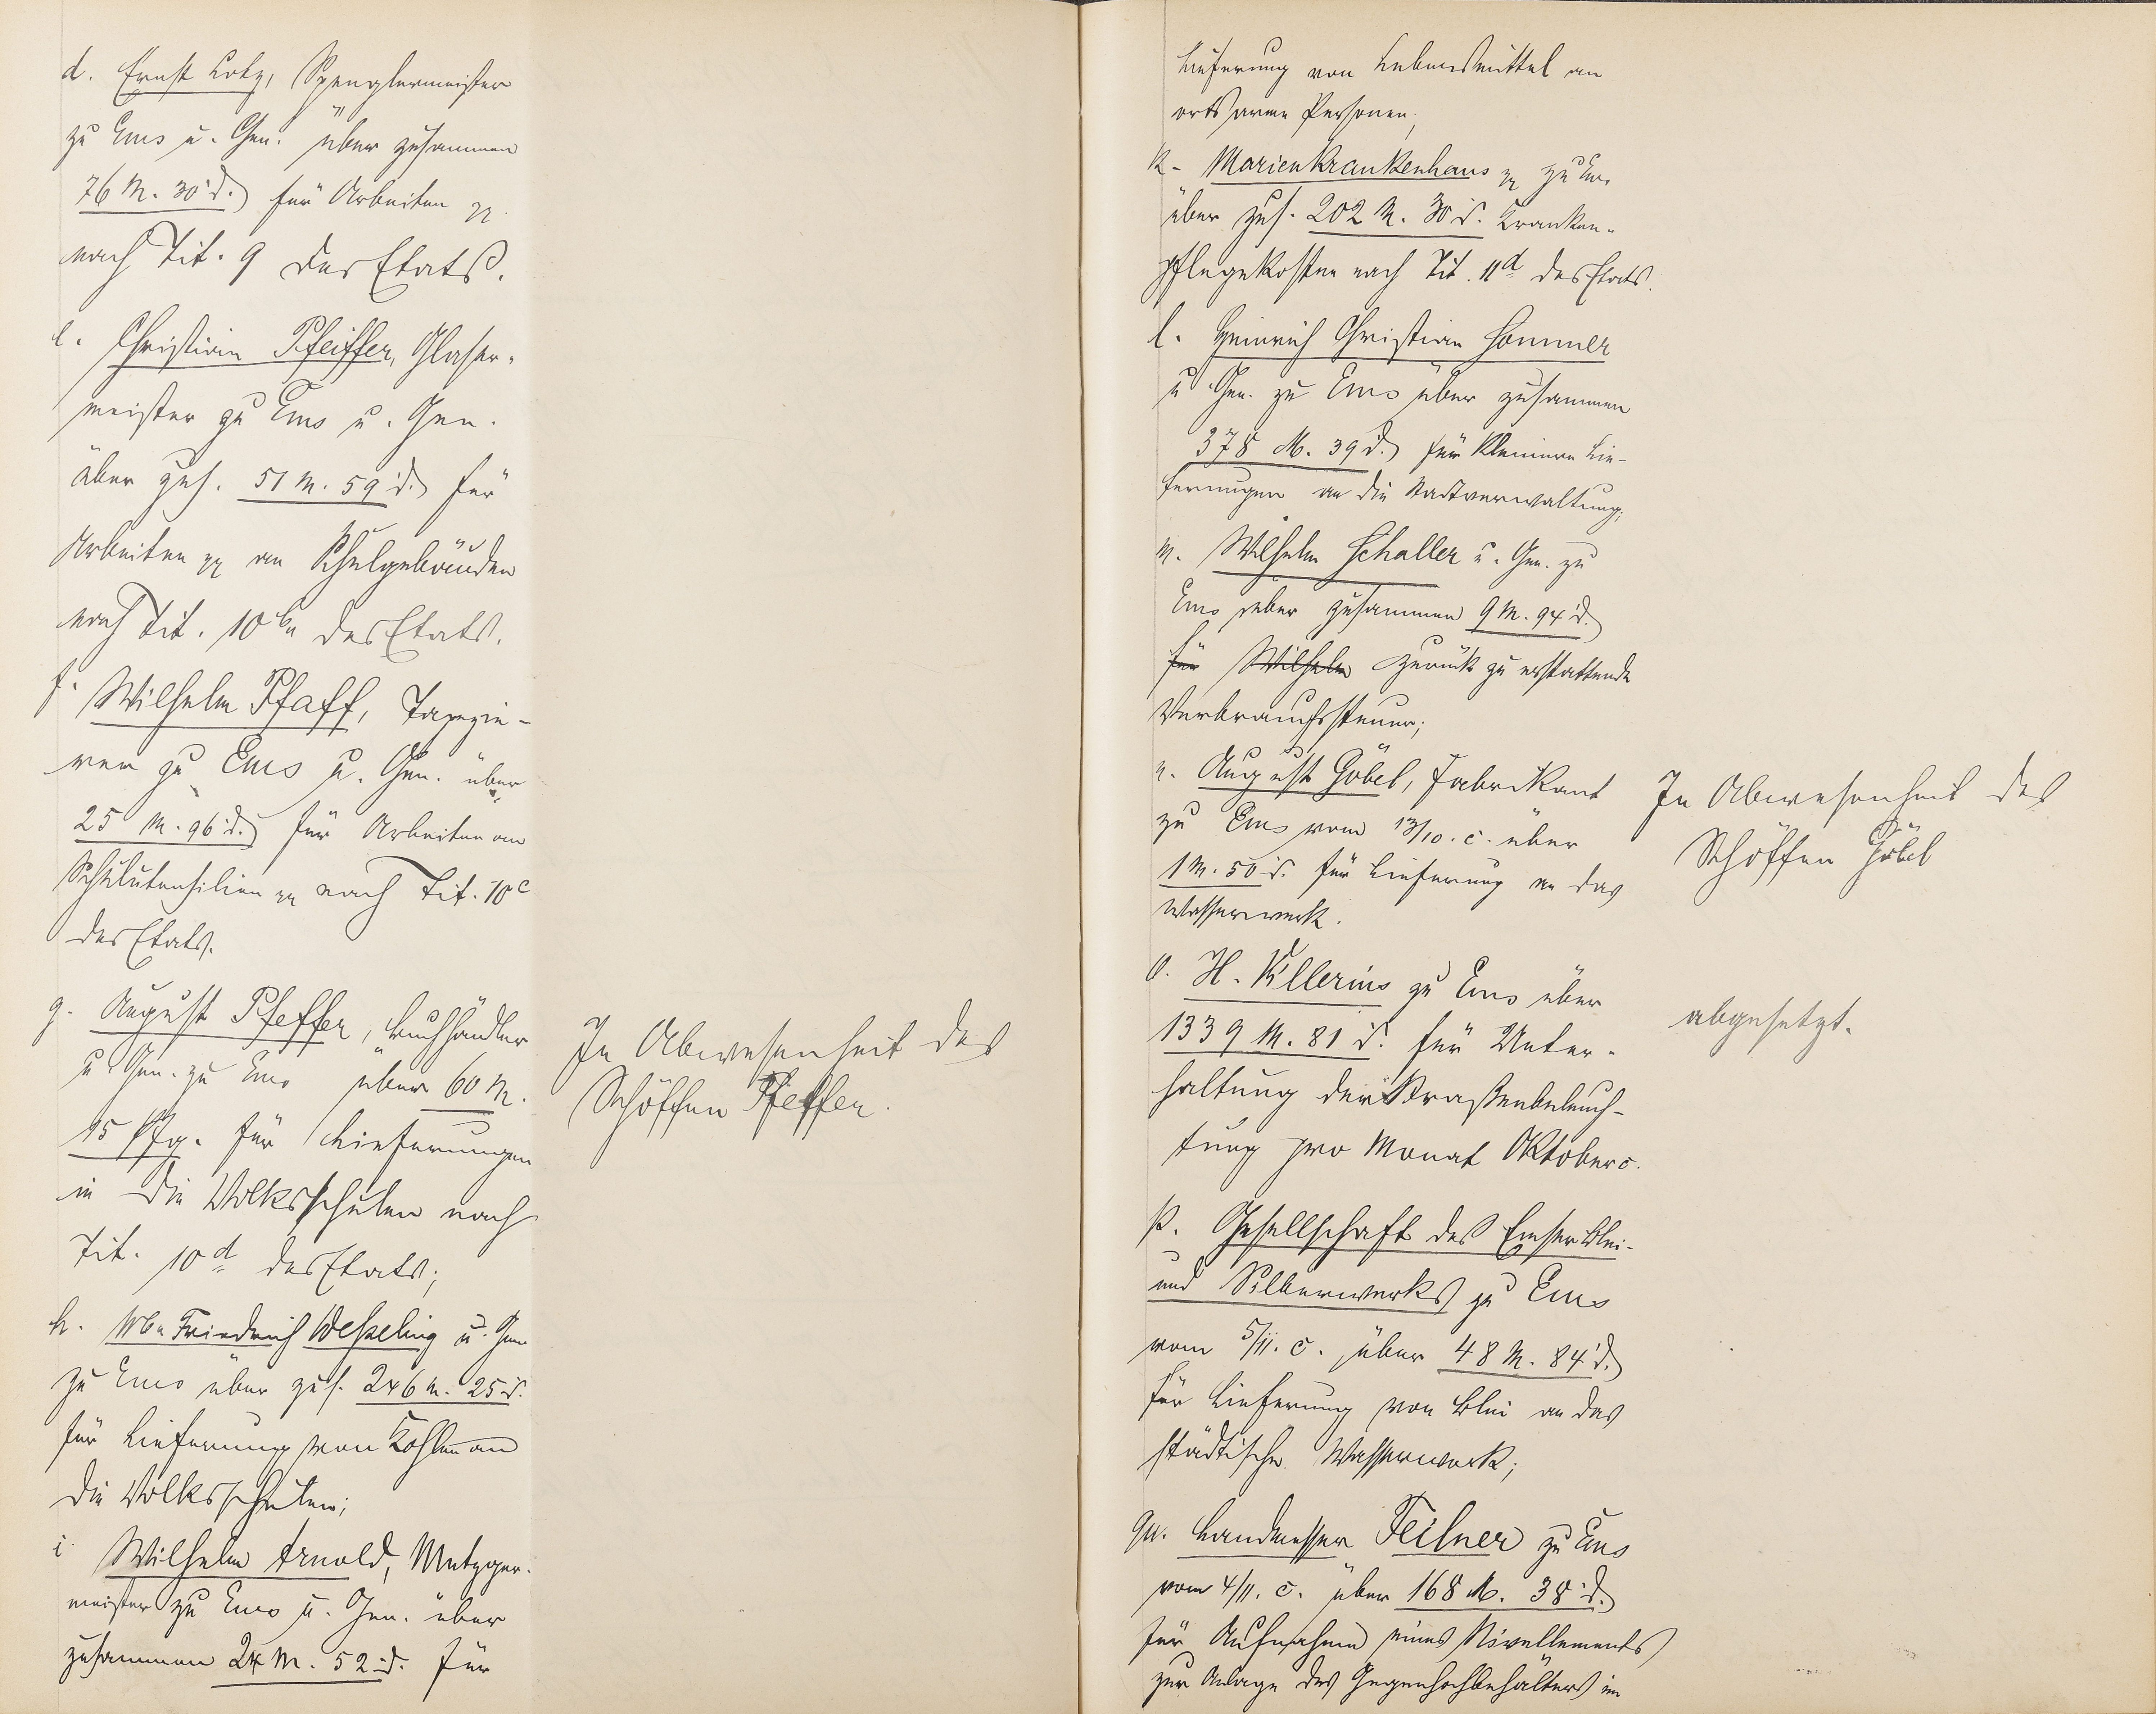 d. Ernst Lotz, Spenglermeister
zu Ems u. Gen. über zusammen
76 M. 30 d. für Arbeiten pp
nach Tit. 9 des Etats.
e. Christian Pfeiffer, Glaser-
meister zu Ems u. Gen.
über zus. 51 M. 59 d. für
Arbeiten pp an Schulgebäuden
nach Tit. 10 ba des Etats.
f. Wilhelm Pfaff, Tapezie-
rer zu Ems u. Gen. über
25 M. 96 d. für Arbeiten an
Schulutensilien pp nach Tit. 10c
des Etats.
g. August Pfeffer, Buchhändler
u. Gen. zu Ems über 60 M.
15 Pfg. für Lieferungen
in die Volksschulen nach
Tit. 10d des Etats;
In Abwesenheit des
Schöffen Pfeffer.
h. Wwe Friedrich Weßeling u. Gen
zu Ems über zus. 246 M. 25 d.
für Lieferung von Kohlen an
die Volksschulen;
i. Wilhelm Arnold, Metzger-
meister zu Ems u. Gen. über
zusammen 24 M. 52 d. für
Lieferung von Lebensmittel an
ortsarme Personen;
k. Marienkrankenhaus pp zu Ems
über zus. 202 M. 30 d. Kranken-
pflegekosten nach Tit. 11d des Etats.
l. Heinrich Christian Sommer
u. Gen. zu Ems über zusammen
378 M. 39 d. für kleinere Lie-
ferungen an die Stadtverwaltung;
m. Wilhelm Schaller u. Gen. zu
Ems über zusammen 9 M. 94 d.
für Wilhelm zurück zu erstattende
Verbrauchssteuer;
n. August Göbel, Fabrikant
zu Ems vom 13/10. c. über
1 M. 50 d. für Lieferung an das
Wasserwerk.
In Abwesenheit des
Schöffen Göbel
o. H. Killerius zu Ems über
1339 M. 81 d. für Unter-
haltung der Straßenbeleuch-
tung pro Monat Oktober c.
abgesetzt.
p. Gesellschaft des Emser Blei-
und Silberwerks zu Ems
vom 5/11. c. über 48 M. 84 d.
für Lieferung von Blei an das
städtische Wasserwerk;
qu. Landmesser Feilner zu Ems
vom 4/11. c. über 168 M. 38 d.
für Aufnahme eines Nivellements
zur Anlage des Gegenhochbehälters im